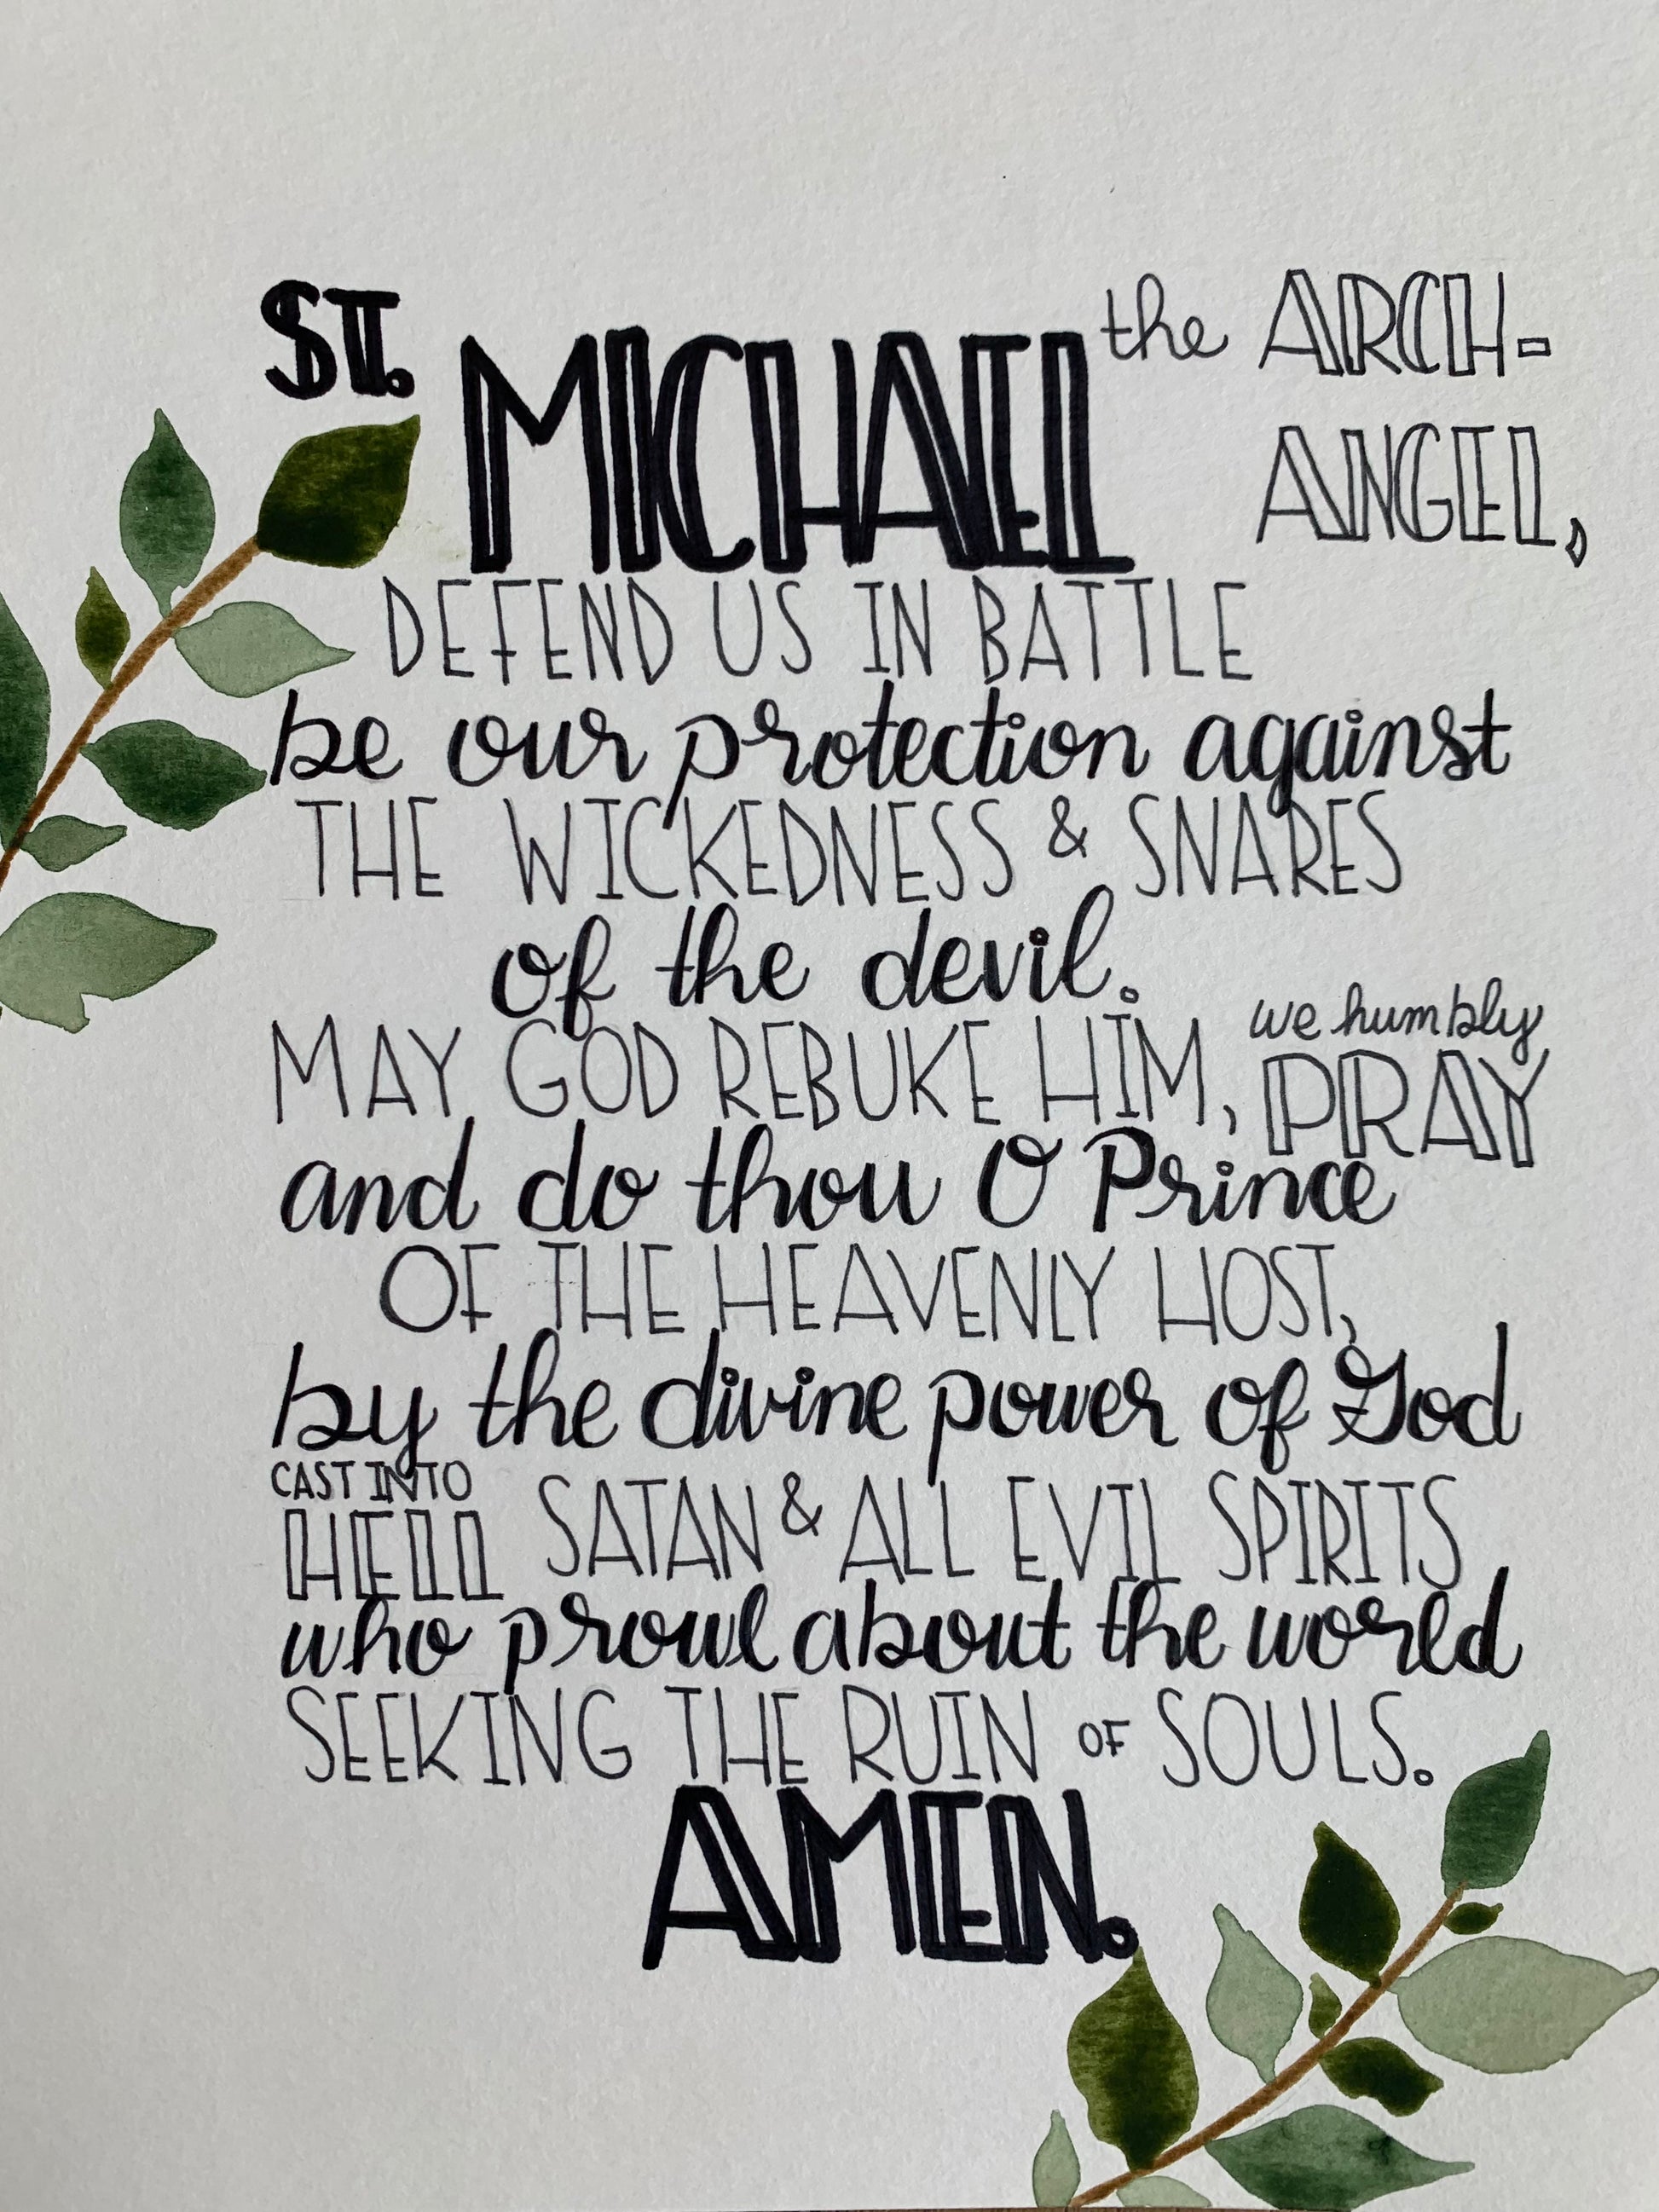 ST. MICHAEL the ARCH-
ANGEL,
DEFEND US IN BATTLE
be our protection against
THE WICKEDNESS & SNARES
of the devil.
MAY GOD REBUKE HIM, we humbly PRAY
and do thou O Prince
OF THE HEAVENLY HOST,
by the divine power of God
CAST INTO HELL SATAN & ALL EVIL SPIRITS
who prowl about the world
SEEKING THE RUIN OF SOULS.
AMEN.